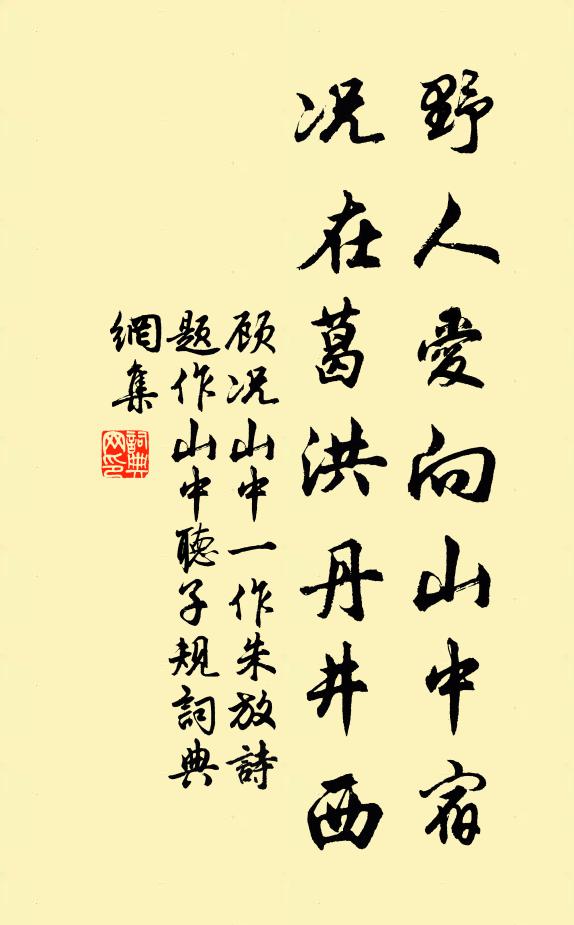 野人愛向山中宿
况在葛洪丹井西
顾况山中一作朱放詩
题作山中聴子规詞典
網集
詞典
网印